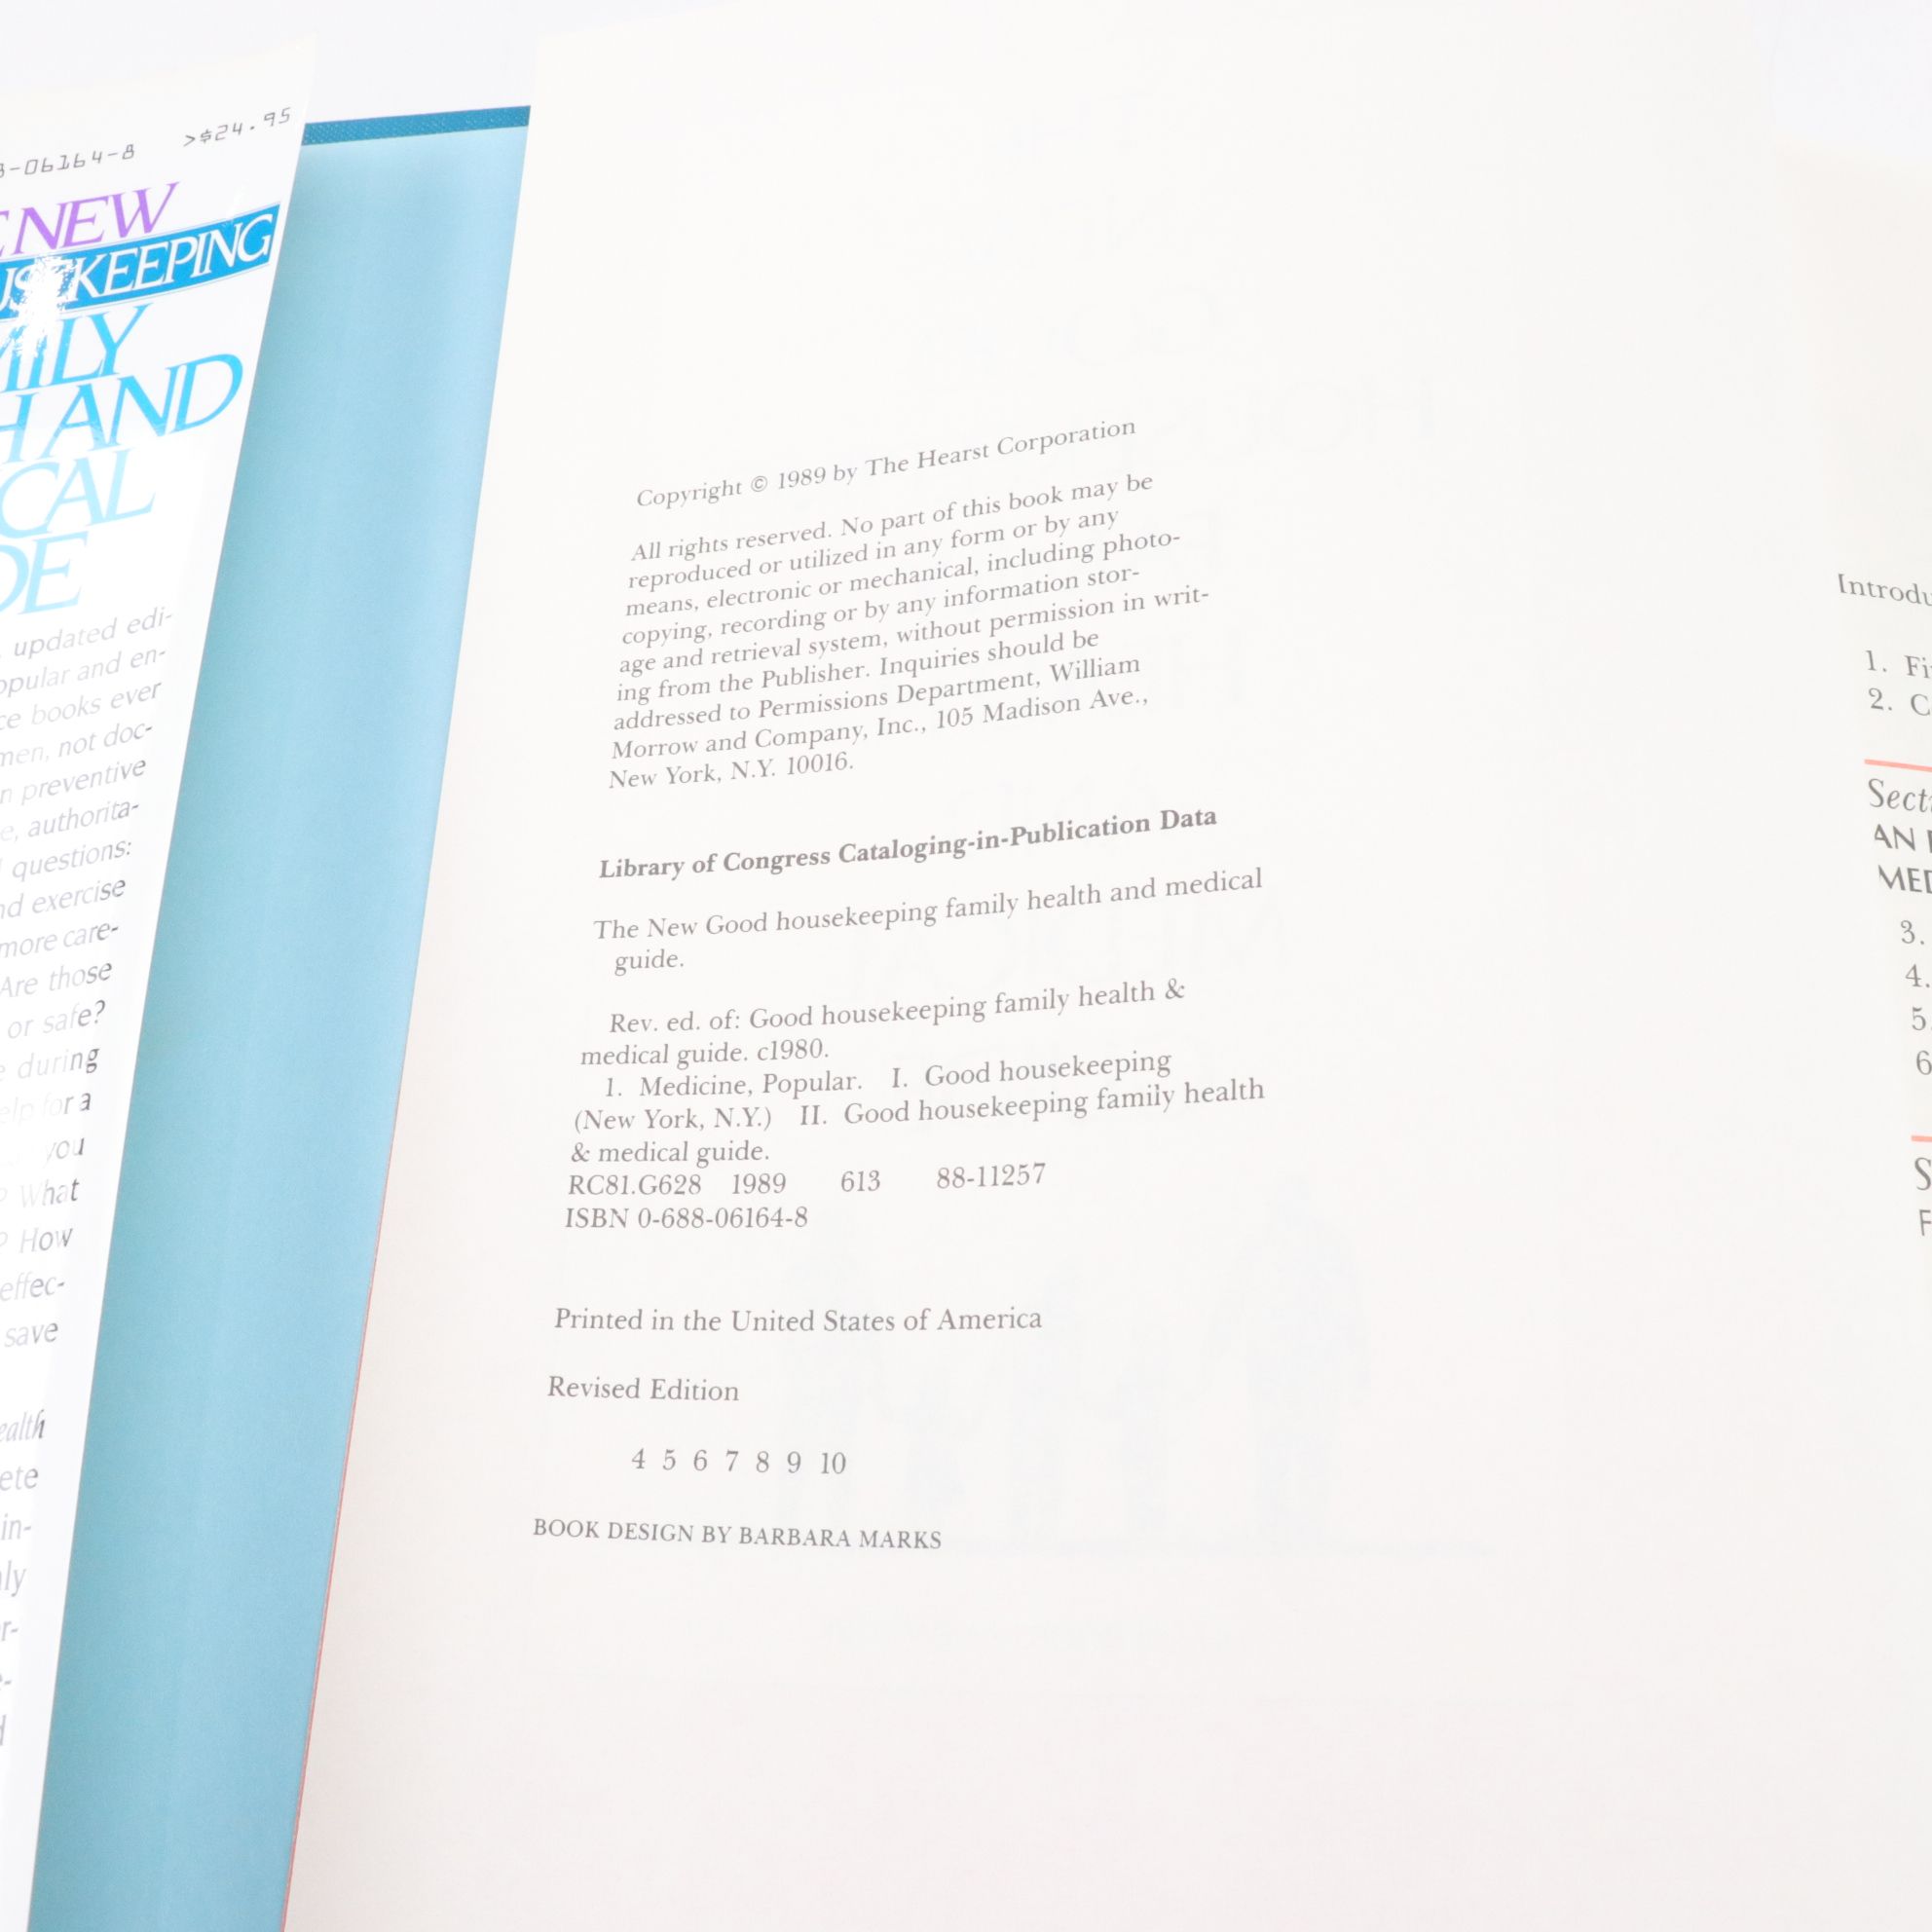 -06164-8 >$24.95
NEW
KEEPING
AND
updated edi-
and en-
books ever
not doc-
preventive
authorita-
questions:
exercise
more care-
Are those
or safe?
during
for a
you
What
How
effec-
save
in-
Copyright © 1989 by The Hearst Corporation
All rights reserved. No part of this book may be
reproduced or utilized in any form or by any
means, electronic or mechanical, including photo-
copying, recording or by any information stor-
age and retrieval system, without permission in writ-
ing from the Publisher. Inquiries should be
addressed to Permissions Department, William
Morrow and Company, Inc., 105 Madison Ave.,
New York, N.Y. 10016.
Library of Congress Cataloging-in-Publication Data
The New Good housekeeping family health and medical
guide.
Rev. ed. of: Good housekeeping family health &
medical guide. c1980.
1. Medicine, Popular. I. Good housekeeping
(New York, N.Y.) II. Good housekeeping family health
& medical guide.
RC81.G628 1989 613 88-11257
ISBN 0-688-06164-8
Printed in the United States of America
Revised Edition
4 5 6 7 8 9 10
BOOK DESIGN BY BARBARA MARKS
1.
2.
AN
3.
4.
5
6